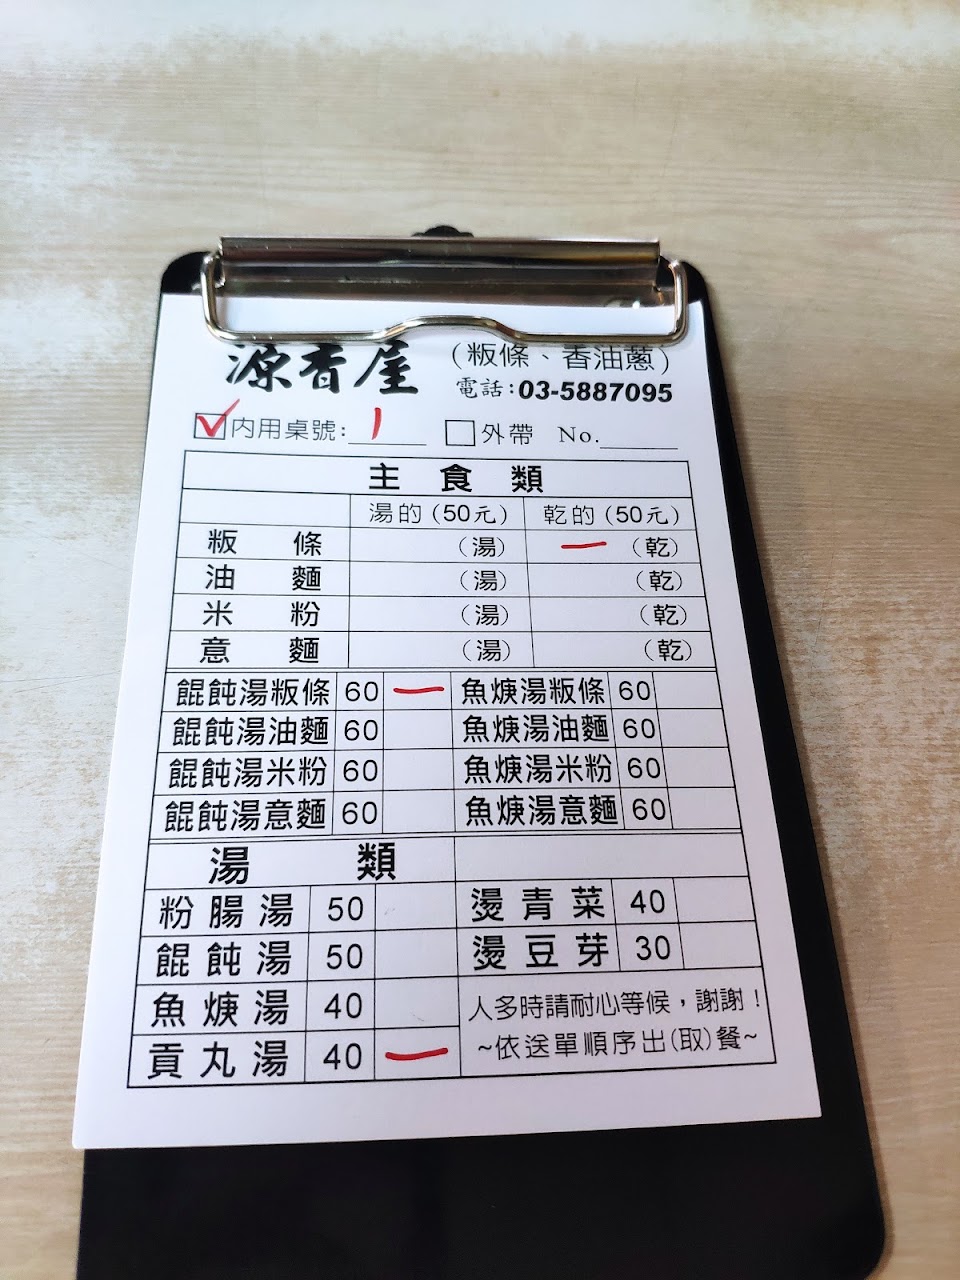 源香屋 (粄條、香油蔥)
電話:03-5887095
內用桌號: 1 外帶 No.
主食類
湯的(50元) 乾的(50元)
粄條 (湯) 一 (乾)
油麵 (湯) (乾)
米粉 (湯) (乾)
意麵 (湯) (乾)
餛飩湯粄條 60 一 魚焿湯粄條 60
餛飩湯油麵 60 魚焿湯油麵 60
餛飩湯米粉 60 魚焿湯米粉 60
餛飩湯意麵 60 魚焿湯意麵 60
湯類
粉腸湯 50 燙青菜 40
餛飩湯 50 燙豆芽 30
魚焿湯 40
貢丸湯 40 一
人多時請耐心等候，謝謝！
~依送單順序出(取)餐~